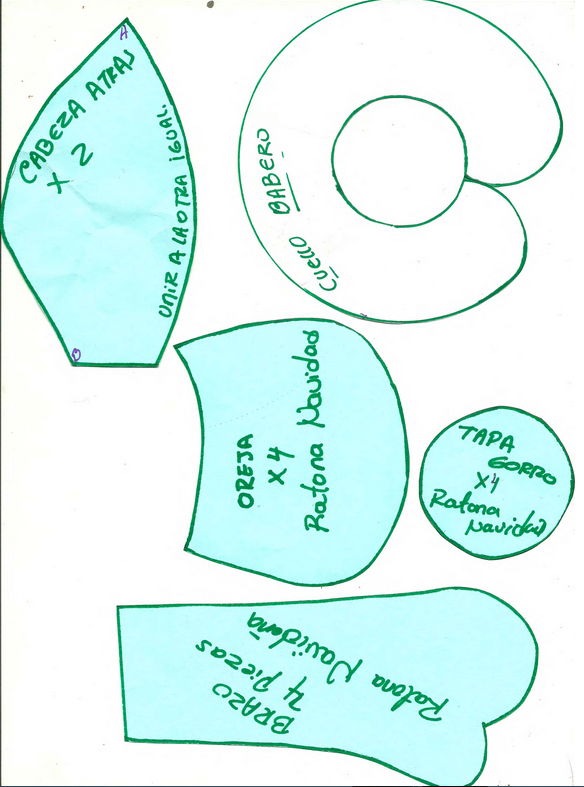 A
CABEZA ATRAS
X 2
UNIR A LA OTRA IGUAL.
B
CUELLO BABERO
OREJA
X 4
Ratona Navidad
TAPA
GORRO
X4
Ratona
Navidad
BRAZO
4 Piezas
Ratona Navideña